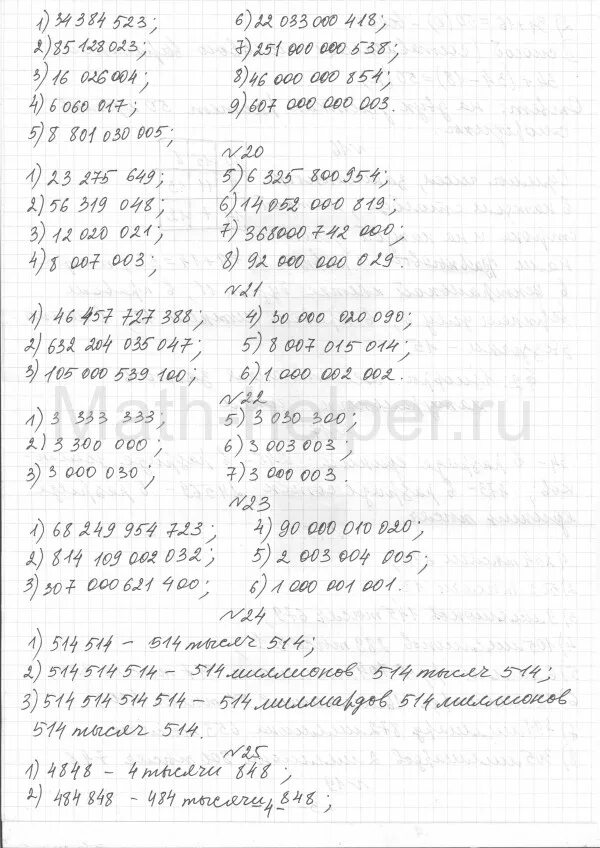 1) 34 384 523; 6) 22 033 000 418;
2) 85 128 023; 7) 251 000 000 538;
3) 16 026 004; 8) 46 000 000 854;
4) 6 060 017; 9) 607 000 000 003.
5) 8 801 030 005;
№20
1) 23 275 649; 5) 6 325 800 954;
2) 56 319 048; 6) 14 052 000 819;
3) 12 020 021; 7) 368 000 742 000;
4) 8 007 003; 8) 92 000 000 029.
№21
1) 46 457 727 388; 4) 30 000 020 090;
2) 632 204 035 047; 5) 8 007 015 014;
3) 105 000 539 100; 6) 1 000 002 002.
№22
Math-helper.ru
1) 3 333 333; 5) 3 030 300;
2) 3 300 000; 6) 3 003 003;
3) 3 000 030; 7) 3 000 003.
№23
1) 68 249 954 723; 4) 90 000 010 020;
2) 814 109 002 032; 5) 2 003 004 005;
3) 307 000 621 400; 6) 1 000 001 001.
№24
1) 514 514 - 514 тысяч 514;
2) 514 514 514 - 514 миллионов 514 тысяч 514;
3) 514 514 514 514 - 514 миллиардов 514 миллионов
514 тысяч 514.
№25
1) 4848 - 4 тысячи 848;
2) 484 848 - 484 тысячи 848;
-4-